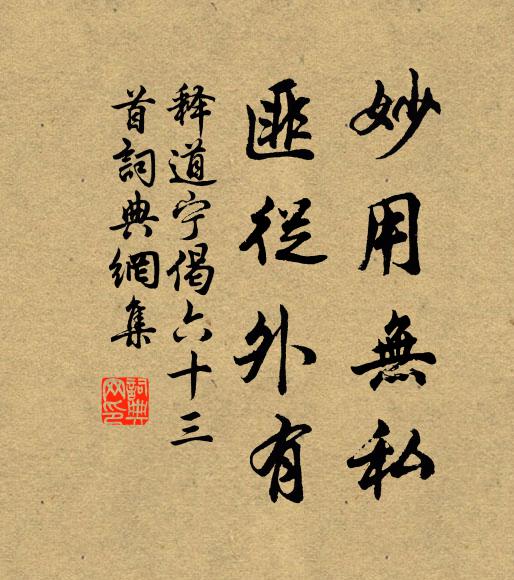 妙用無私
匪從外有
释道宁偈六十三
首詞典網集
詞典网印